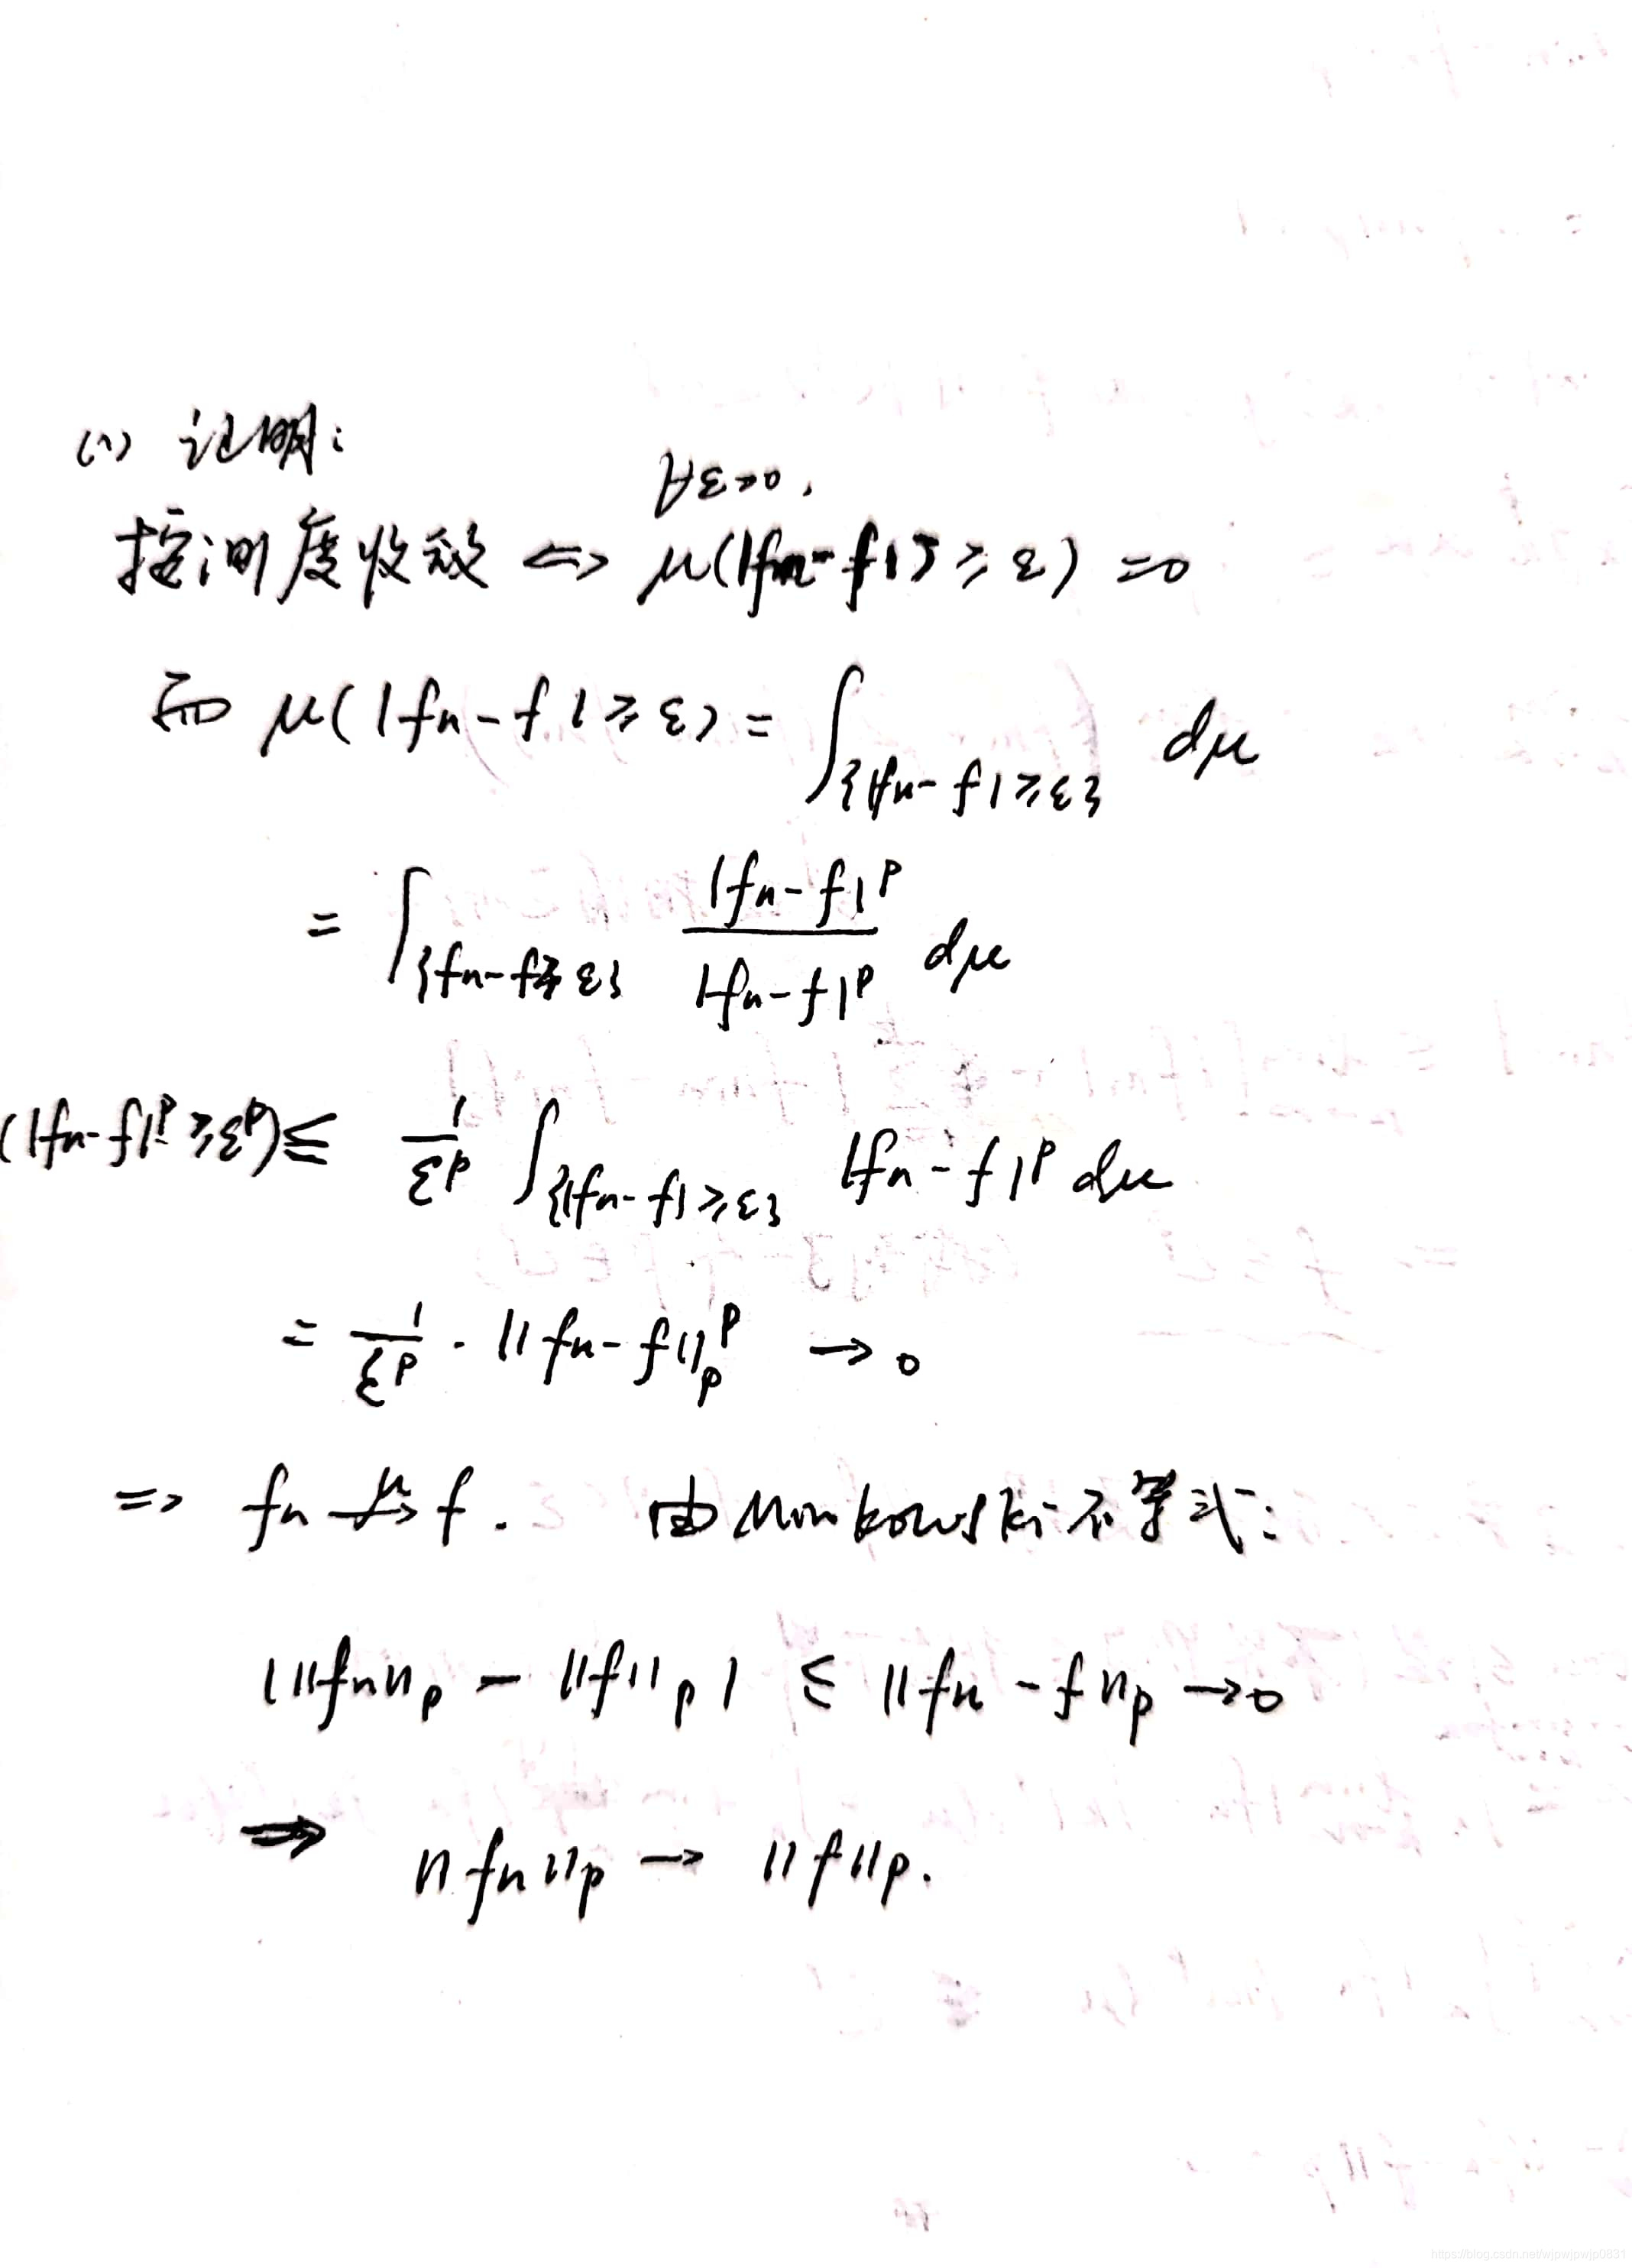 (1) 证明:
∀ε>0,
按测度收敛 <=> μ(|fn-f|) ≥ ε) =0
而 μ(|fn-f|≥ε) = ∫_{|fn-f|≥ε} dμ
= ∫_{fn-f≥ε} |fn-f|^p / |fn-f|^p dμ
(|fn-f|^p≥ε^p) ≤ 1/ε^p ∫_{|fn-f|≥ε} |fn-f|^p dμ
= 1/ε^p · ||fn-f||_p^p → 0
=> fn →^μ f. 由Minkowski不等式:
| ||fn||_p - ||f||_p | ≤ ||fn-f||_p → 0
⇒ ||fn||_p → ||f||_p.
https://blog.csdn.net/wjpwjpwjp0831